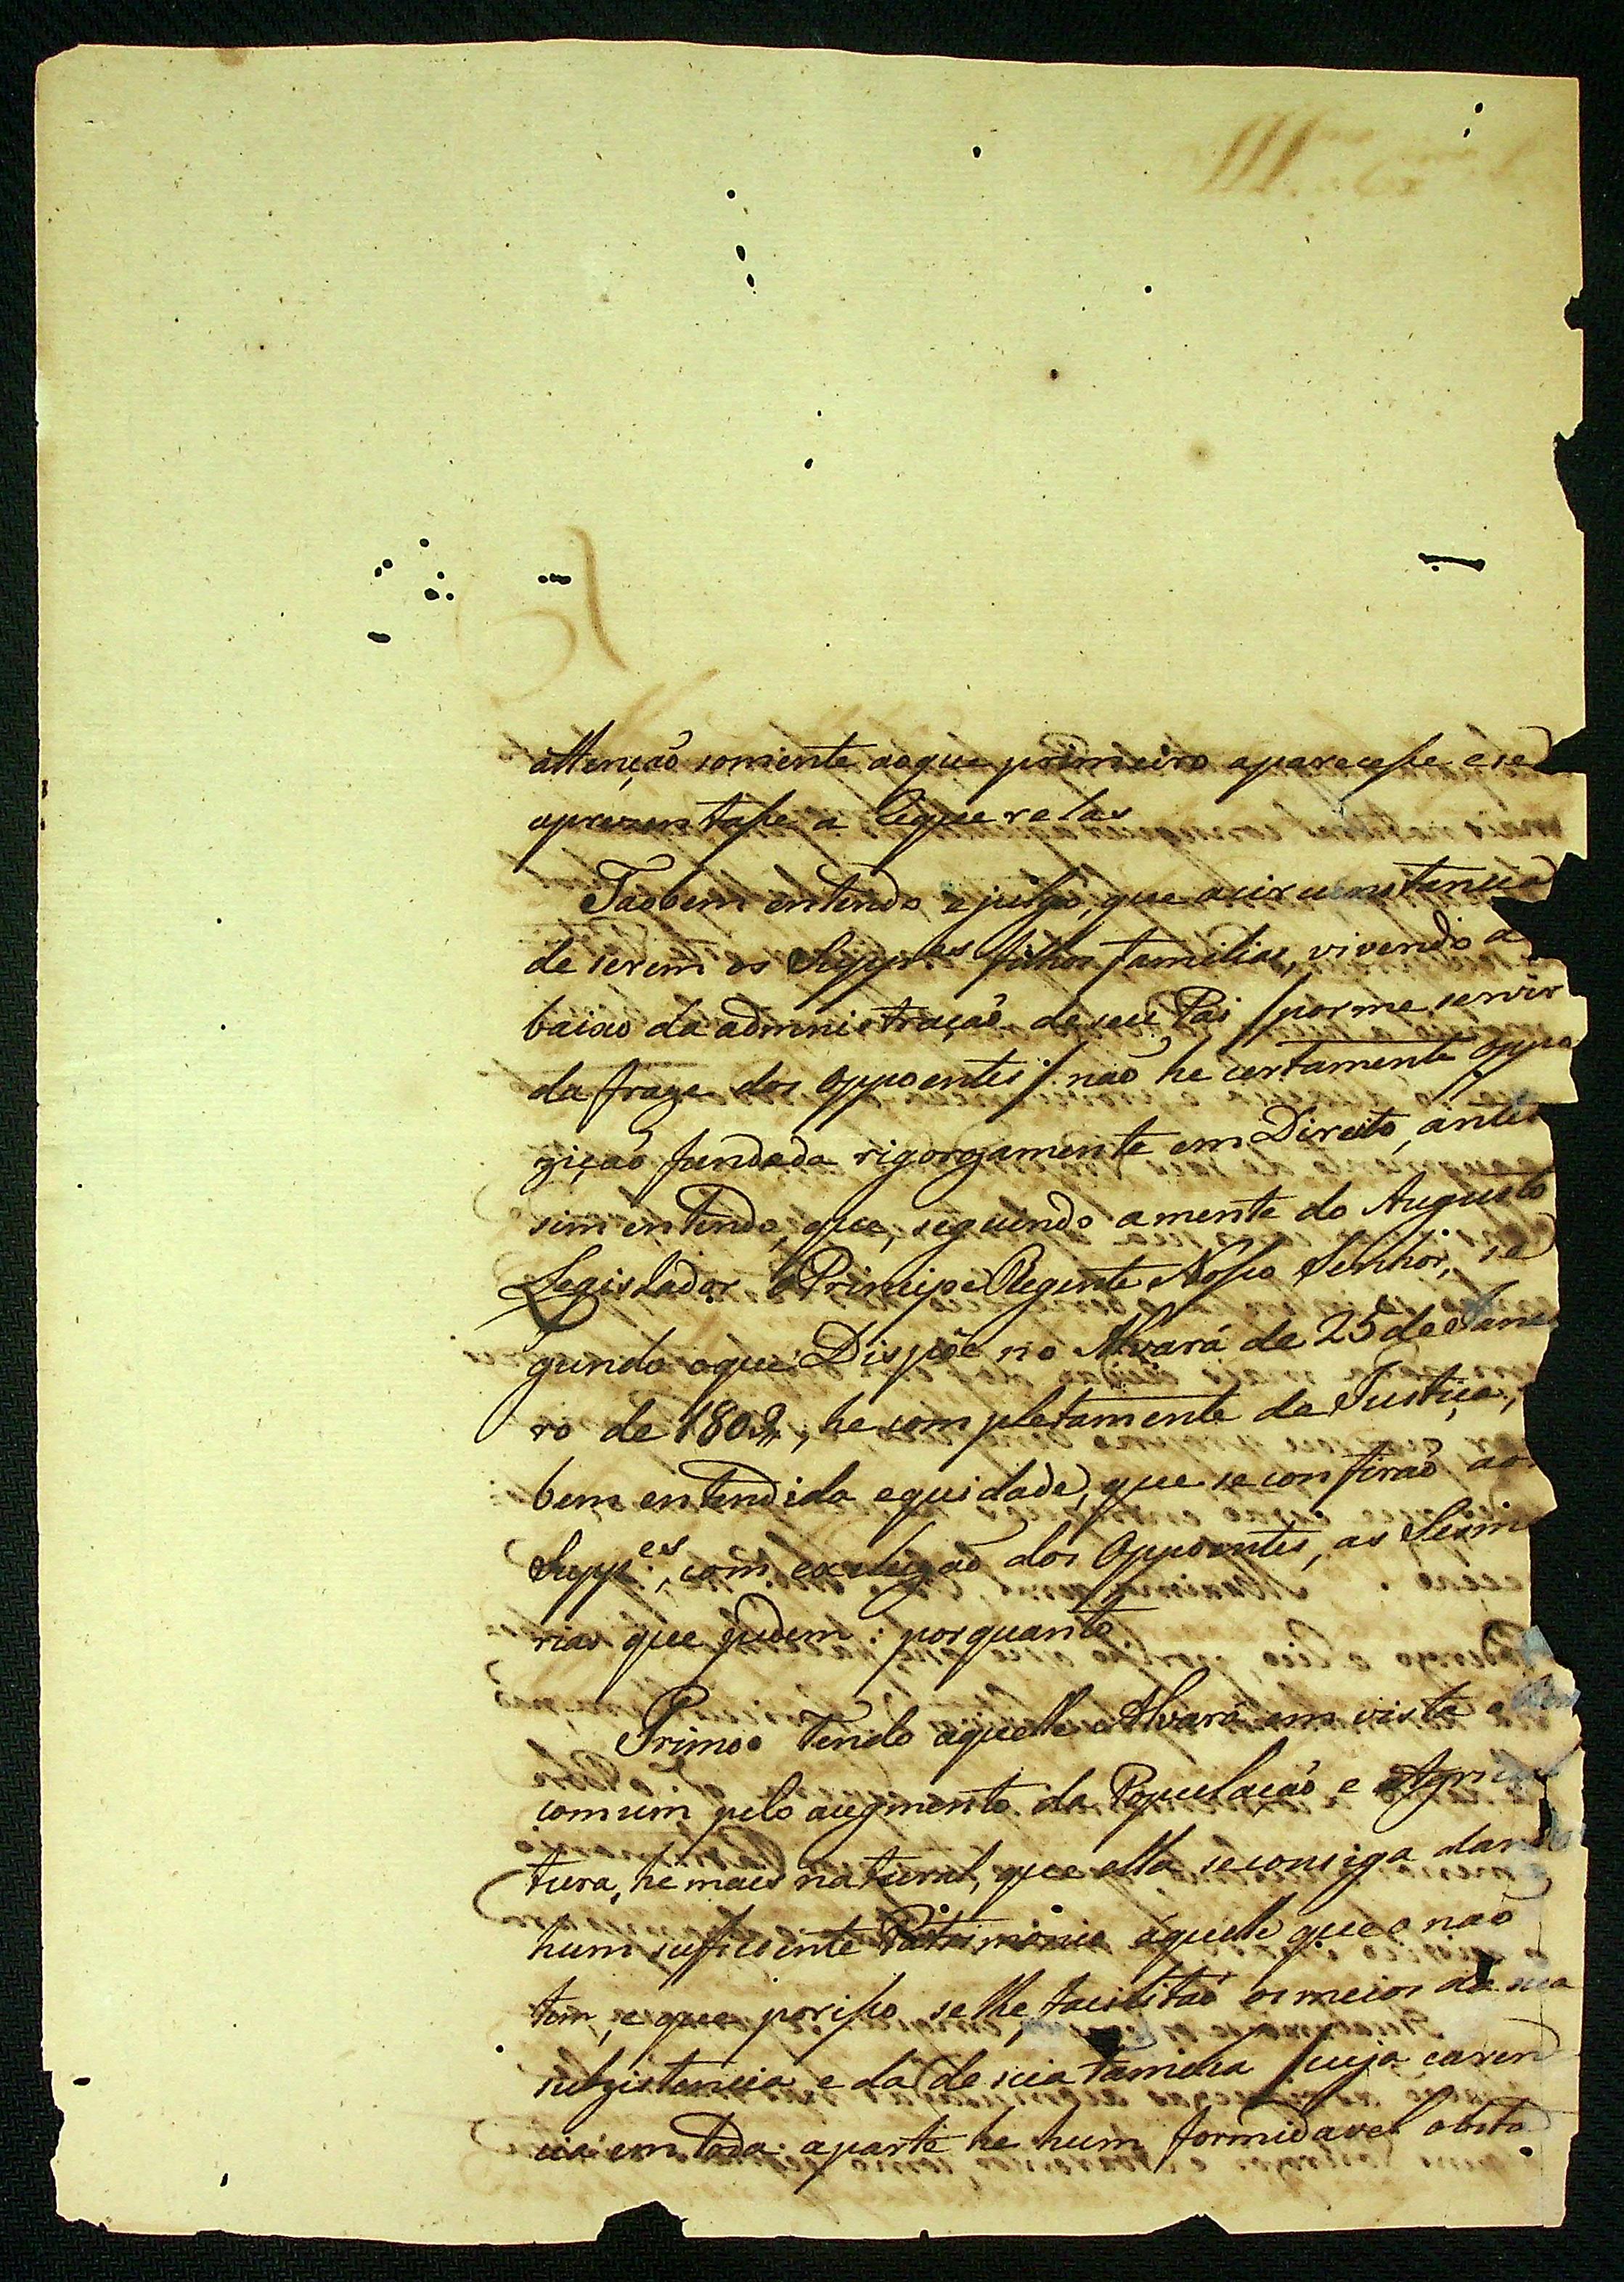 attenção somente aoque primeiro aparecesse e se
aprezentasse a requerelas
Taobem entendo e julgo, que a circumstancia
de serem os Supp.es filhos familias, vivendo a
baixo da administração de seu Pai /por me servir
da fraze dos Oppoentes/ não he certamente oppo
zição fundada rigorozamente em Direito, antes
sim entendo, que, seguindo amente do Augusto
Legislador o Principe Regente Nosso Senhor, se
gundo oque Dispõe no Alvará de 25 de Janei
ro de 1809, he completamente de Justiça,
bem entendida equidade, que se confirão aos
Supp.es, com excluzão dos Oppoentes, as Sesm
rias que pedem: porquanto
Primo Tendo aquelle Alvará em vista o
comum pelo augmento da População, e Agricul
tura, he mais natural, que ella se consiga dando
hum sufficiente Patrimonio áquelle que o não
tem, e que porisso se lhe facilitão os meios da sua
subzistencia, e da de sua familia /cuja caren
cia em toda aparte he hum formidavel obsta